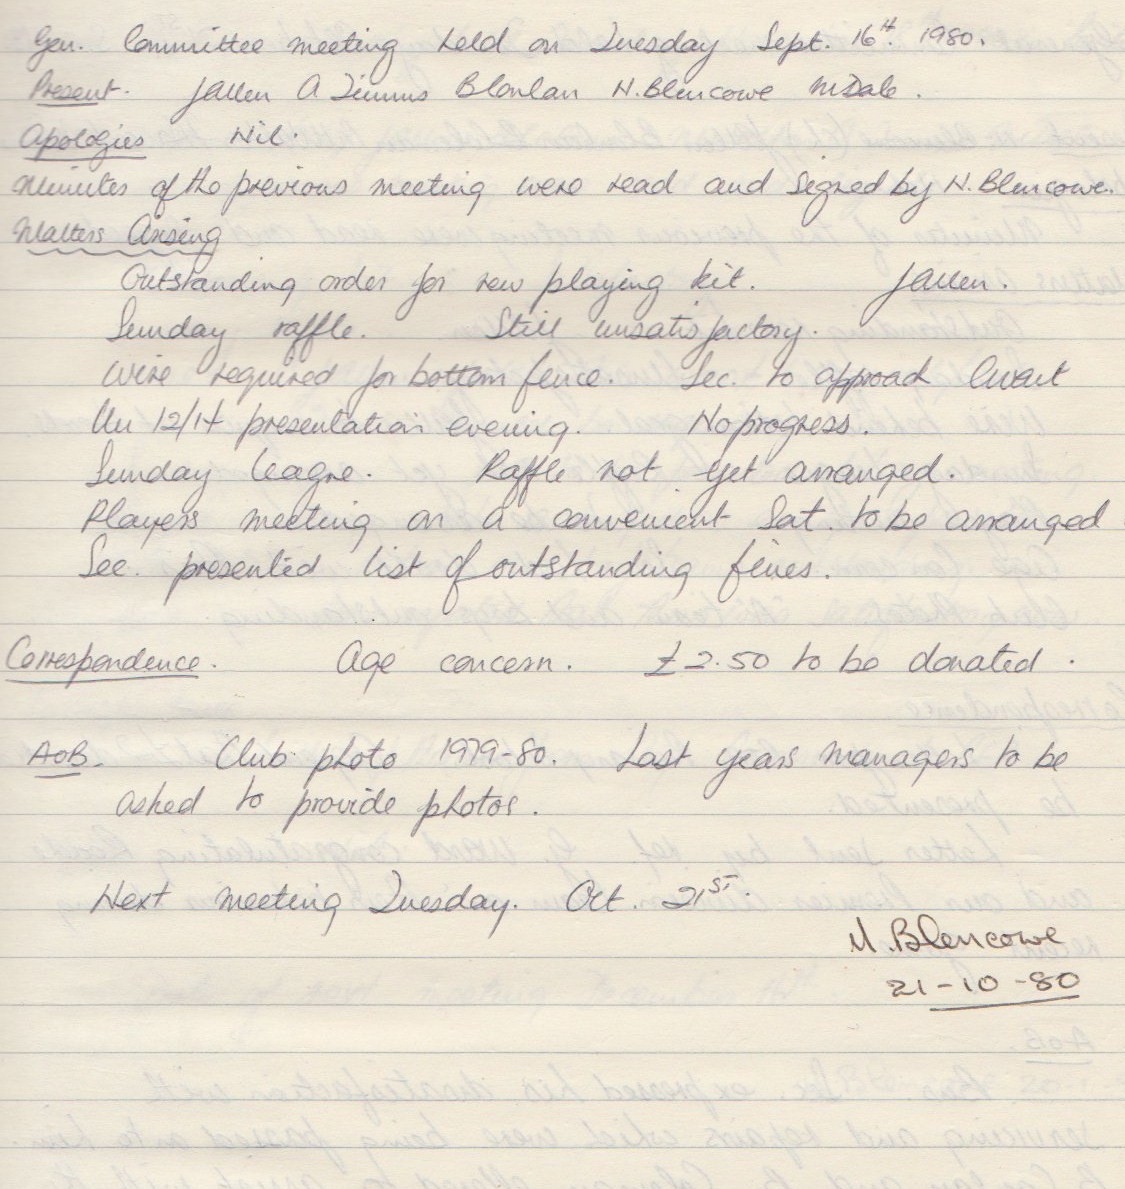 Gen. Committee meeting held on Tuesday Sept. 16th. 1980.
Present. J Allen A Timms B Conlan N. Blencowe M Dale.
Apologies Nil.
Minutes of the previous meeting were read and signed by N. Blencowe.
Matters Arising
Outstanding order for new playing kit. J Allen.
Sunday raffle. Still unsatisfactory.
Wire required for bottom fence. Sec. to approach
Un 12/14 presentation evening. No progress.
Sunday League. Raffle not yet arranged.
Players meeting on a convenient Sat. to be arranged
Sec. presented list of outstanding fines.
Correspondence. Age concern. £2.50 to be donated.
AoB. Club photo 1979-80. Last years managers to be
asked to provide photos.
Next meeting Tuesday. Oct. 21st.
N. Blencowe
21-10-80